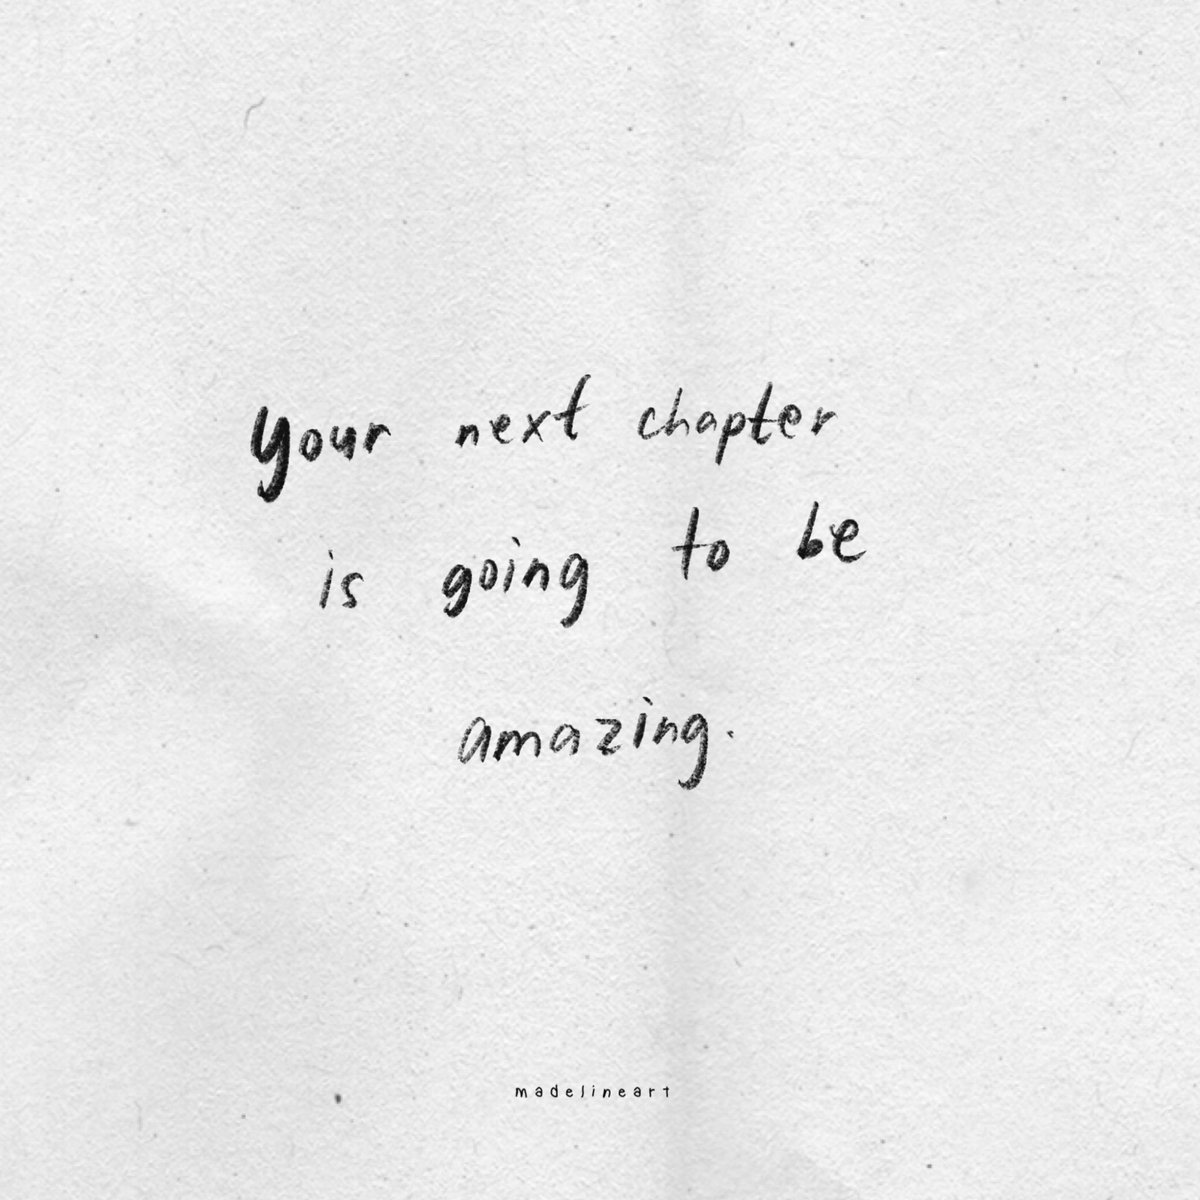 your next chapter
is going to be
amazing.
madelineart